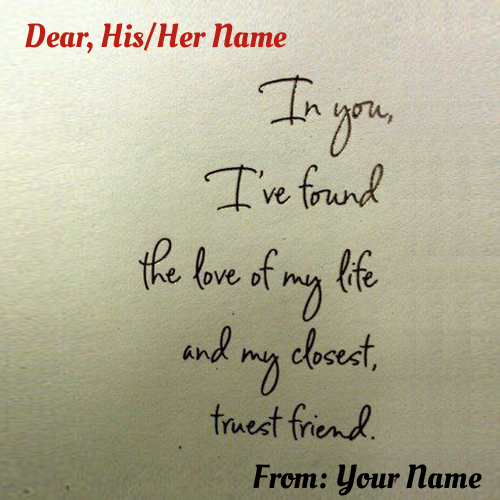 Dear, His/Her Name
In you,
I've found
the love of my life
and my closest,
truest friend.
From: Your Name